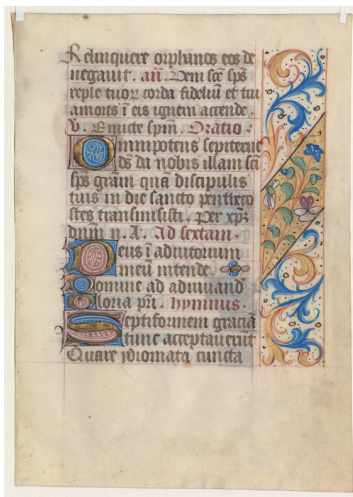 Relinquere orphanos eos de
negauit. añ. Veni scẽ sp̃s
reple tuoꝝ corda fideliũ et tui
amoris ĩ eis ignem accende.
v. Emicte spm̃. Oratio.
Omnipotens sempiterne
ds̃ da nobis illam scĩ
sp̃s gram̃ quã discipulis
tuis in die sancto penthecos
stes transmisisti. Per xp̃m
dnm̃ n. A. Ad sextam.
Deus ĩ adiutorium
meũ intende.
Domine ad adiuuand
Gloria pr̃i. hymnus.
Septiformem graciã
tunc acceptauerũt
Quare ydiomata cuncta